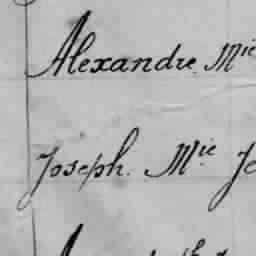 Alexandre Mie
Joseph. Mie Jo